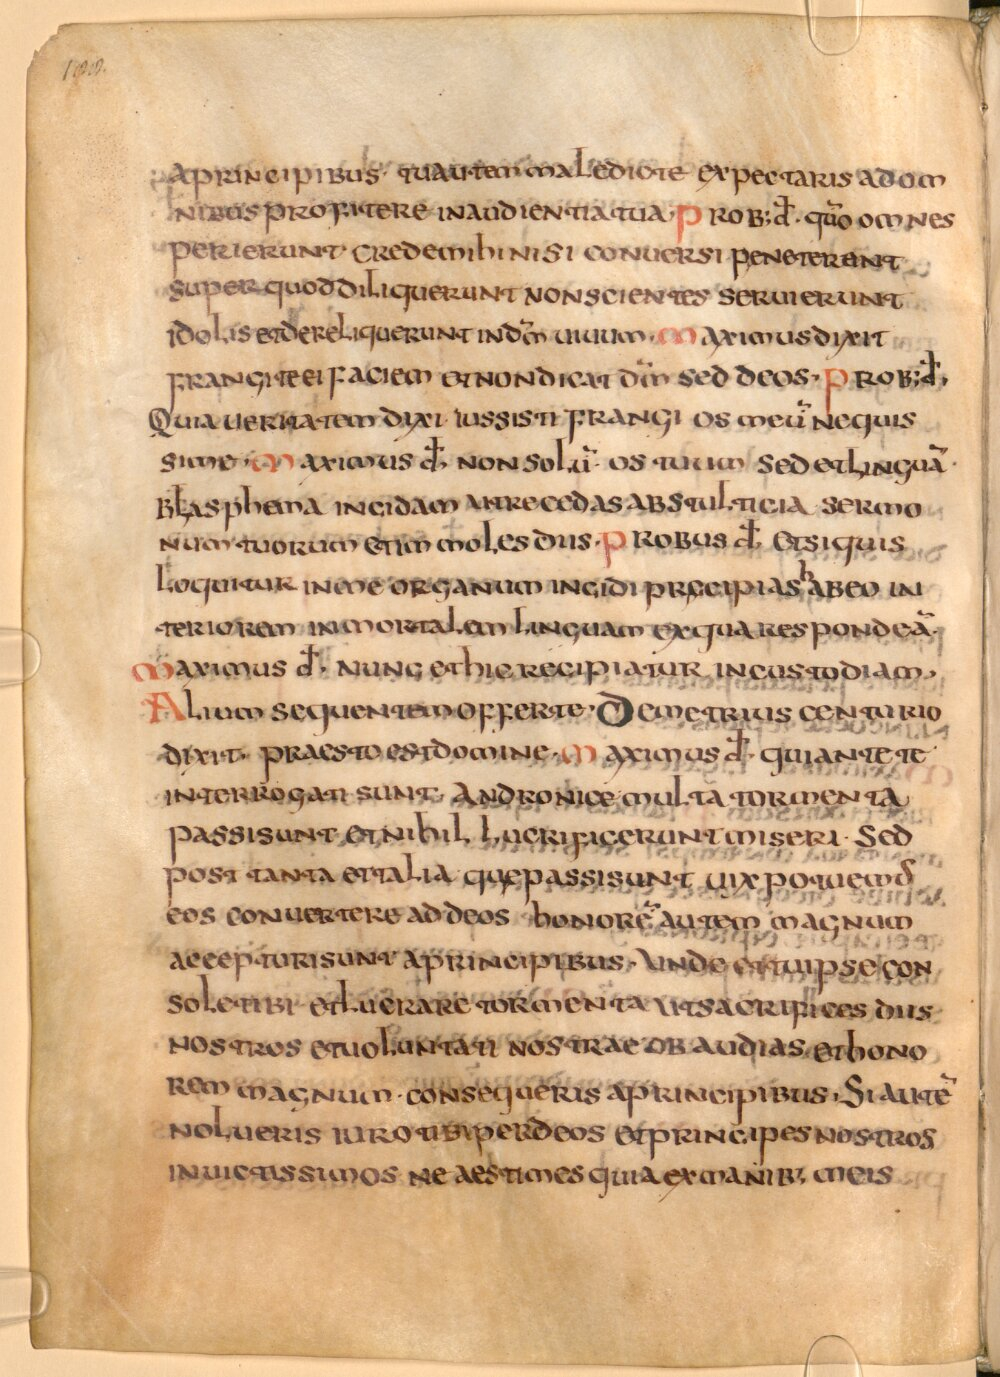 a principibus· tu autem maledicte expectaris ad om
nibus profitere in audientia tua· Prob; đ· quō omnes
perierunt· crede mihi nisi conuersi peneterent
super quod diliquerunt non scientes seruierunt
idolis et dereliquerunt in dm̄ uiuum· Maximus dixit
frangite ei faciem et non dicat dm̄ sed deos· Prob; đ·
Quia ueritatem dixi iussisti frangi os meū nequis
sime· Maximus đ· non solū· os tuum sed et linguā·
blasphema incidam ut recedas ab stulticia sermo
num tuorum et immoles diis· Probus đ· et si quis
loquitur in me organum incidi precipias habeo in
teriorem inmortalem linguam ex qua respondeā·
Maximus đ· nunc et hic recipiatur in custodiam·
Alium sequentem offerte· Demetrius centurio
dixit· praesto est domine· Maximus đ· qui ante te
interrogati sunt· Andronice multa tormenta
passi sunt et nihil lucrificerunt miseri· Sed
post tanta et talia que passi sunt uix potuem͛
eos conuertere ad deos honorē autem magnum
accepturi sunt a principibus· Unde et tu ipse con
sole tibi et luerare tormenta ut sacrifices diis
nostros et uoluntati nostrae obaudias et hono
rem magnum· consequeris a principibus· Si autē
nolueris iuro tibi per deos et principes nostros
inuictissimos ne aestimes quia ex manib; meis